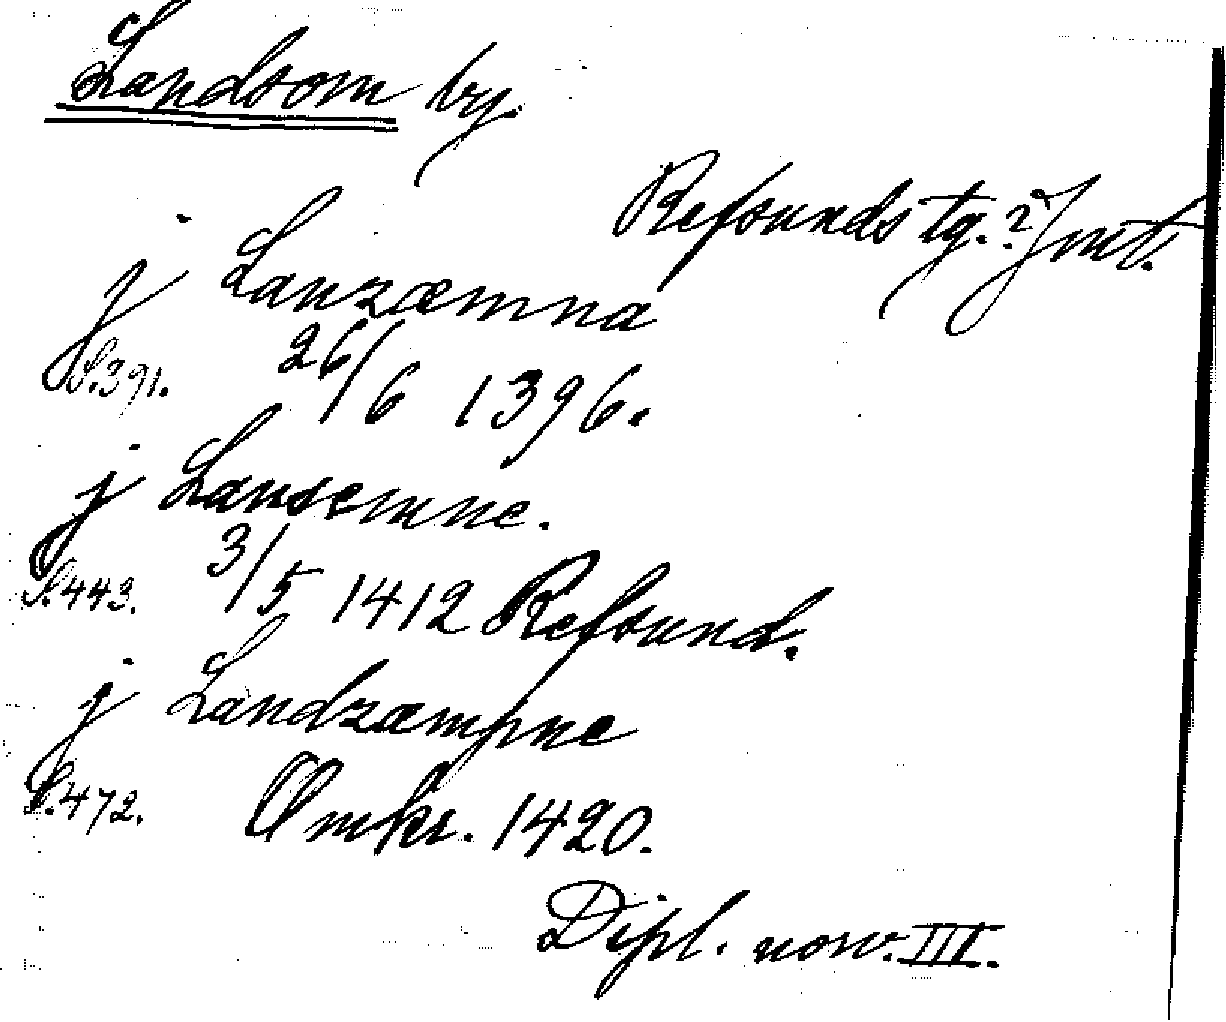 Landsom by.
Refsunds tg.? Jmt.
j Lanzæmna
S. 391. 26/6 1396.
j Lansemne.
S. 443. 3/5 1412 Refsund.
j Landzæmpne
S. 472. Omkr. 1420.
Dipl. norv. III.